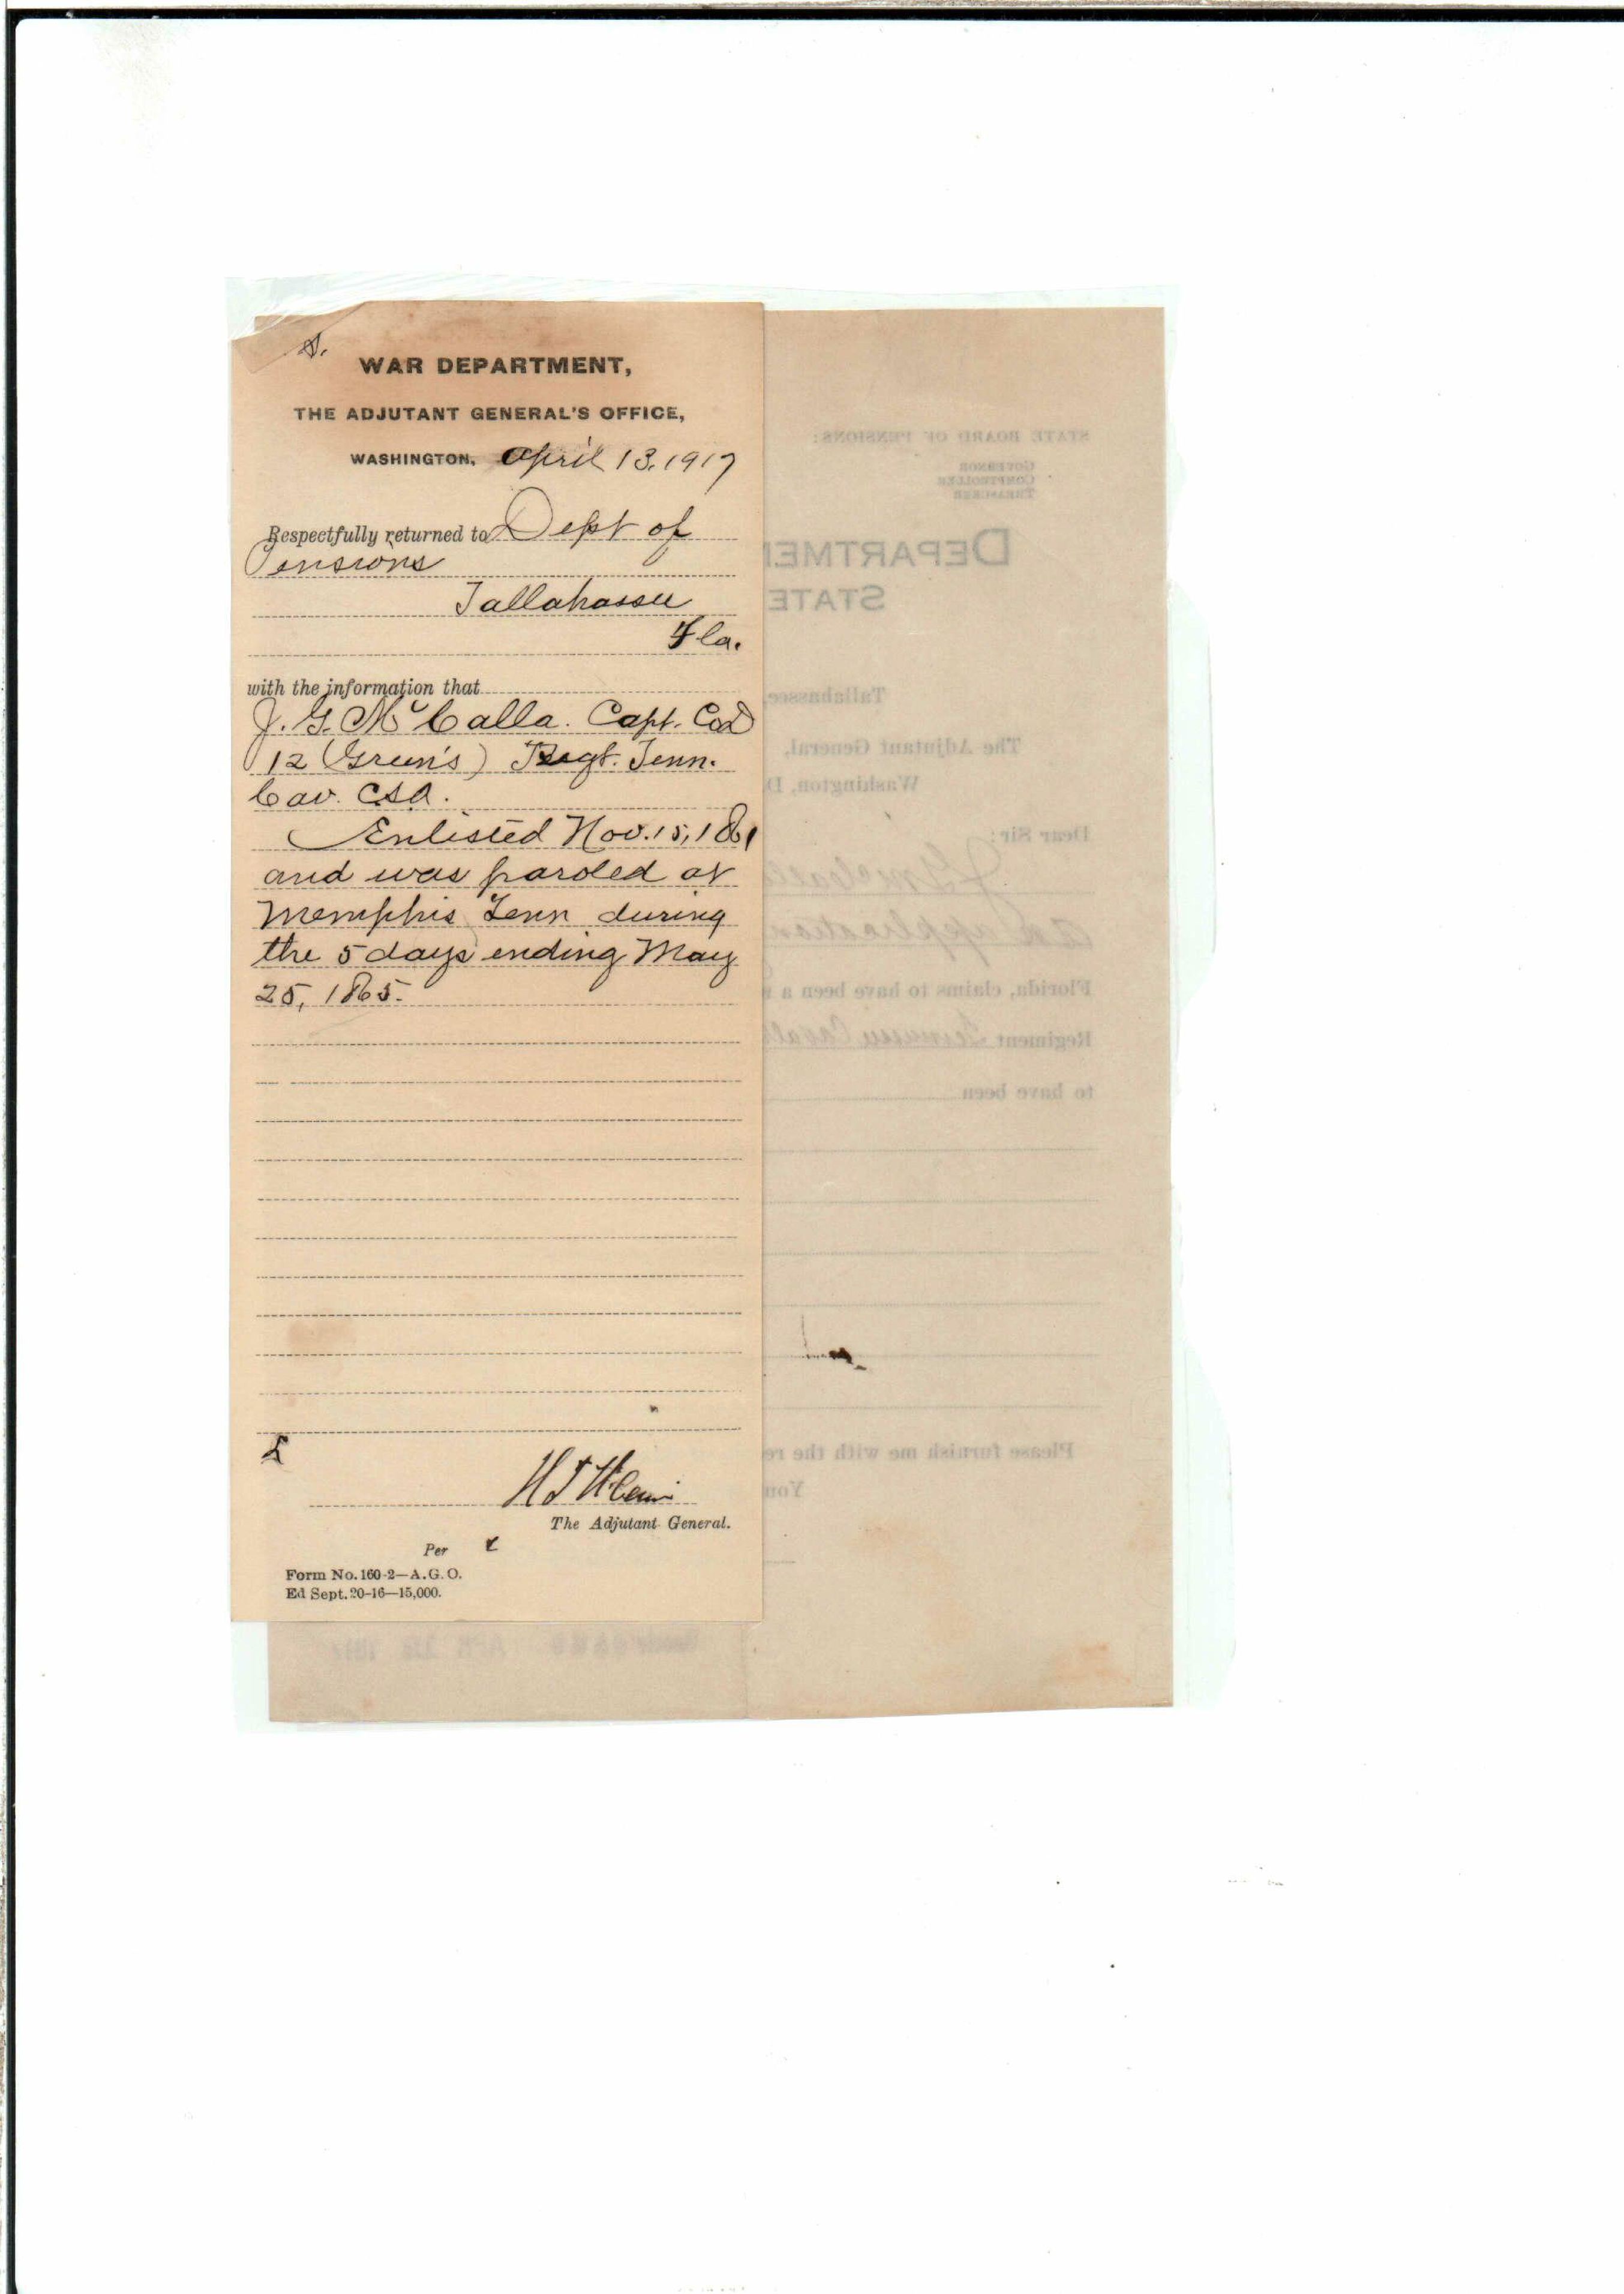 WAR DEPARTMENT,
THE ADJUTANT GENERAL'S OFFICE,
WASHINGTON, April 13, 1917
Respectfully returned to Dept of
Pensions
Tallahassee
Fla.
with the information that
J. G. McCalla. Capt. Co D
12 (Green's) Regt. Tenn.
Cav. CSA.
Enlisted Nov. 15, 1861
and was paroled at
Memphis, Tenn during
the 5 days ending May
25, 1865.
The Adjutant General.
Per
Form No. 160-2—A.G.O.
Ed Sept. 20-16—15,000.
STATE BOARD OF PENSIONS:
GOVERNOR
COMPTROLLER
TREASURER
DEPARTME
STATE
Tallahassee
The Adjutant General,
Washington, D
Dear Sir:
J G McCall
an application
Florida, claims to have been a
Regiment Tennessee Caval
to have been
Please furnish me with the re
You